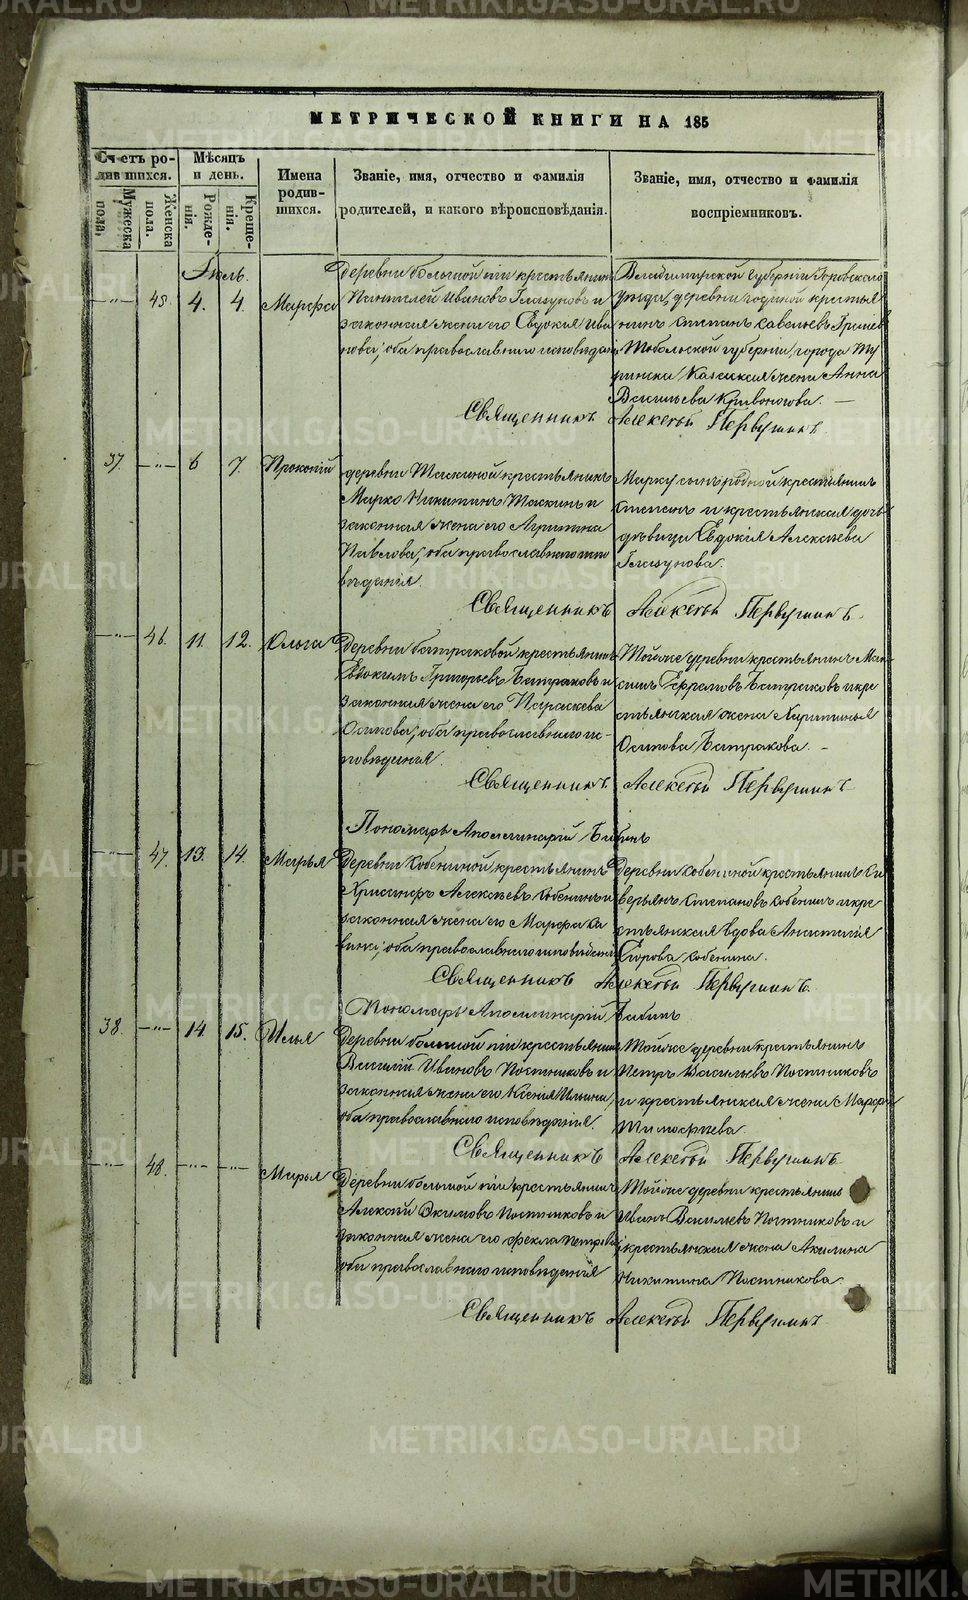 МЕТРИЧЕСКОЙ КНИГИ НА 185
Счетъ ро-
дившихся.
Мѣсяцъ
и день.
Имена
родив-
шихся.
Званіе, имя, отчество и фамилія
родителей, и какого вѣроисповѣданія.
Званіе, имя, отчество и фамилія
воспріемниковъ.
Мужеска
пола.
Женска
пола.
Рожде-
нія.
Креще-
нія.
Іюль.
45. 4. 4. Марфа
деревни большой крестьянинъ
Пантелей Ивановъ Глазуновъ и
законная жена его Евдокия Ива
нова, оба православнаго исповедан
Владимирской Губерніи
уезда, деревни крестья
нинъ Степанъ Савельевъ
и Тобольской губерніи, города Ту
ринска жена Анна
Васильева Кривоногова. —
Священникъ Алексѣй Первушинъ.
37. 6 7. Прокопій
деревни Таскиной крестьянинъ
Марко Никитинъ Таскинъ и
законная жена его Агрипина
Павлова, оба православнаго испо
веданія.
Марку сынъ родной крестьянинъ
Степанъ и крестьянская дочь
девица Евдокія Алексеева
Глазунова.
Священникъ Алексѣй Первушинъ.
46. 11. 12. Ольга
Деревни батраковой крестьянинъ
Евдокимъ Григорьевъ Батраковъ и
законная жена его Параскева
Осипова, оба православнаго ис-
поведанія.
Тойже деревни крестьянинъ Мак
симъ Ефремовъ Батраковъ и кре
стьянская жена Харитинья
Осипова Батракова. —
Священникъ Алексѣй Первушинъ
Пономарь Аполлинарій Бабинъ
47. 13. 14. Марья
Деревни Кобениной крестьянинъ
Хрисанфъ Алексеевъ Кобенинъ и
законная жена его Марфа Са
вина, оба православнаго исповедания
Деревни Кобениной крестьянинъ Са
верьянъ Степановъ Кобенинъ и кре
стьянская вдова Анастасія
Егорова Кобенина.
Священникъ Алексѣй Первушинъ.
Пономарь Аполлинарій Бабинъ
38. 14 15. Илья
Деревни большой крестьянинъ
Василій Ивановъ Постниковъ и
законная жена его Ксения Ильина,
оба православнаго исповеданія.
Тойже деревни крестьянинъ
Петръ Васильевъ Постниковъ
и крестьянская жена Марфа
Тимофеева
Священникъ Алексѣй Первушинъ.
48. Марья
Деревни большой крестьянинъ
Алексѣй Екимовъ Постниковъ и
законная жена его Фекла Петрова
оба православнаго исповеданія
Тойже деревни крестьянинъ
Иванъ Васильевъ Постниковъ и
крестьянская жена Акилина
Никитина Постникова.
Священникъ Алексѣй Первушинъ.
METRIKI.GASO-URAL.RU